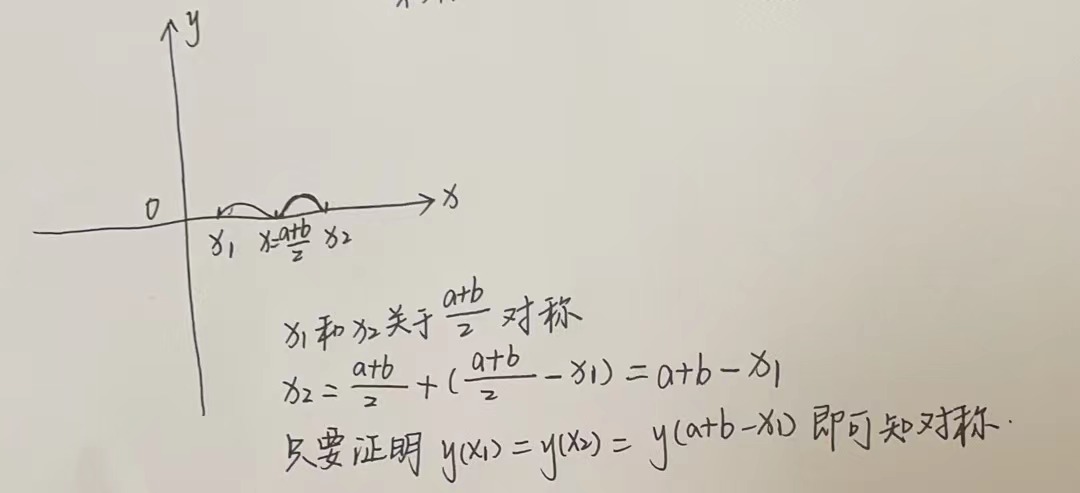 y
0
x
x₁ x=\frac{a+b}{2} x₂
x₁和x₂关于\frac{a+b}{2}对称
x₂=\frac{a+b}{2}+(\frac{a+b}{2}-x₁)=a+b-x₁
只要证明 y(x₁)=y(x₂)=y(a+b-x₁) 即可知对称.